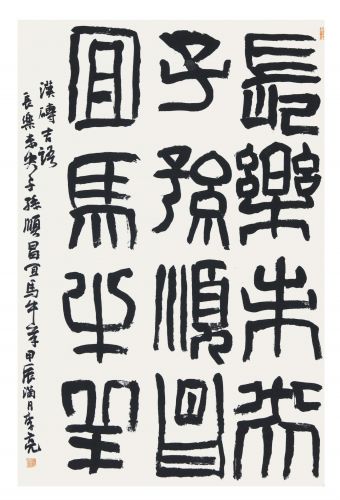 長樂未央
子孫順昌
宜馬牛羊
漢磚吉語
長樂未央子孫順昌宜馬牛羊甲辰蒲月